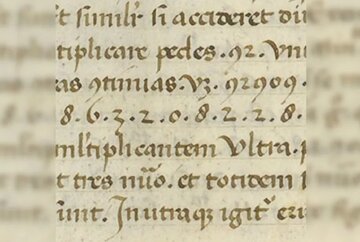 t simili si accideret di
tiplicare pedes. 92. Vn
as 9tinuas. Vz. 92909.
8. 6. 3. 2. 0. 8. 2. 2. 8.
ultiplicantem Vltra.
t tres nũo. et totidem
sunt. In utraqꝫ igit̉ er